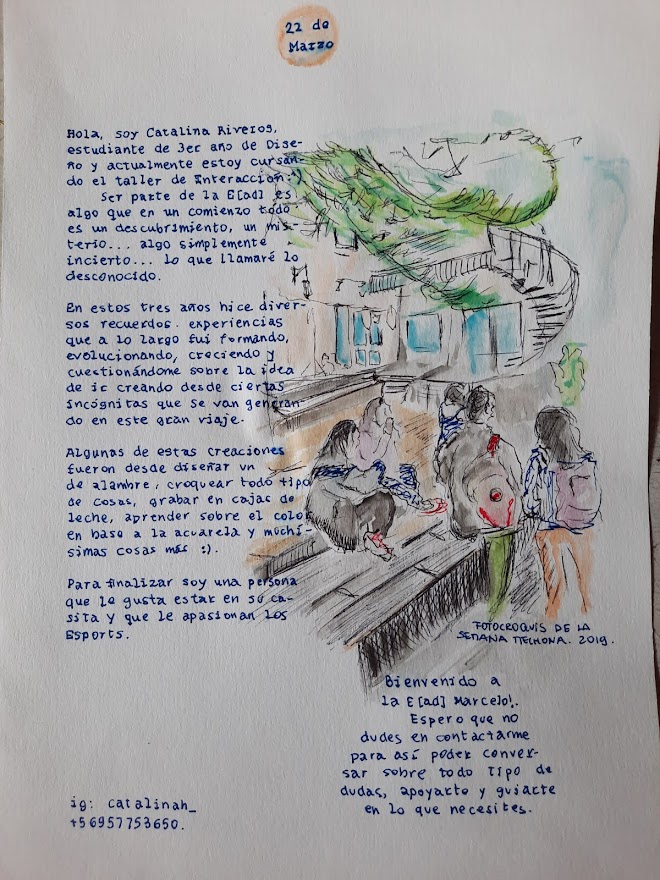 22 de
Marzo
Hola, soy Catalina Riveros,
estudiante de 3er año de Dise-
ño y actualmente estoy cursan-
do el taller de Interacción:)
Ser parte de la E[ad] es
algo que en un comienzo todo
es un descubrimiento, un mis-
terio... algo simplemente
incierto... lo que llamaré lo
desconocido.
En estos tres años hice diver-
sos recuerdos. experiencias
que a lo largo fui formando,
evolucionando, creciendo y
cuestionándome sobre la idea
de ir creando desde ciertas
incógnitas que se van generan-
do en este gran viaje.
Algunas de estas creaciones
fueron desde diseñar un
de alambre, croquear todo tipo
de cosas, grabar en cajas de
leche, aprender sobre el color
en base a la acuarela y muchí-
simas cosas más :).
Para finalizar soy una persona
que le gusta estar en su ca-
sita y que le apasionan los
Esports.
FOTOCROQUIS DE LA
SEMANA 2019.
Bienvenido a
la E[ad] Marcelo!.
Espero que no
dudes en contactarme
para así poder conver-
sar sobre todo tipo de
dudas, apoyarte y guiarte
en lo que necesites.
ig: catalinah_
+56957753650.